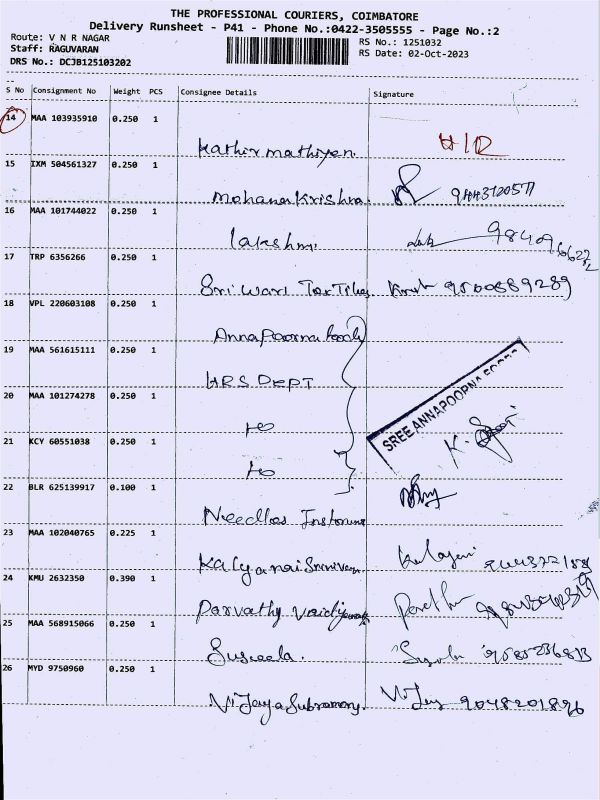 THE PROFESSIONAL COURIERS, COIMBATORE
Delivery Runsheet - P41 - Phone No.:0422-3505555 - Page No.:2
Route: V N R NAGAR RS No.: 1251032
Staff: RAGUVARAN RS Date: 02-Oct-2023
DRS No.: DCJB125103202
S No Consignment No Weight PCS Consignee Details Signature
14 MAA 103935910 0.250 1
Kathir mathiyen. H/R
15 IXM 504561327 0.250 1
Mohana Krishna.
16 MAA 101744022 0.250 1
lakshmi
17 TRP 6356266 0.250 1
Sri Wari Tex Tiles 9500889289
18 VPL 220603108 0.250 1
Anna Poorna foods
19 MAA 561615111 0.250 1
HRS DEPT
20 MAA 101274278 0.250 1
SREE ANNAPOORNA FOODS
21 KCY 60551038 0.250 1
22 BLR 625139917 0.100 1
Needles
23 MAA 102040765 0.225 1
Kalyanai Srinivasan
24 KMU 2632350 0.390 1
Parvathy
25 MAA 568915066 0.250 1
Suseela. 9585236813
26 MYD 9750960 0.250 1
Vijaya Subramany. 9048201896